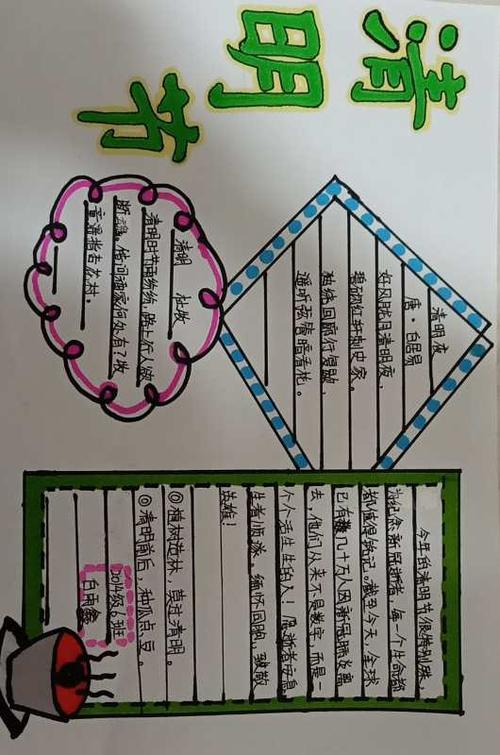 清明节
清明夜
唐·白居易
好风胧月清明夜，
碧砌红轩刺史家。
独绕回廊行复歇，
遥听弦管暗看花。
清明 杜牧
清明时节雨纷纷，路上行人欲
断魂。借问酒家何处有？牧
童遥指杏花村。
今年的清明节很特殊，
为纪念新冠逝者，每一个生命都
都值得铭记。截至今天，全球
已有几十万人因新冠肺炎离
去，他们从来不是数字，而是一
个个活生生的人！愿逝者安息
生者。缅怀同胞，致敬
英雄！
◎植树造林，莫过清明。
◎清明前后，种瓜点豆。
2014级6班
白雨